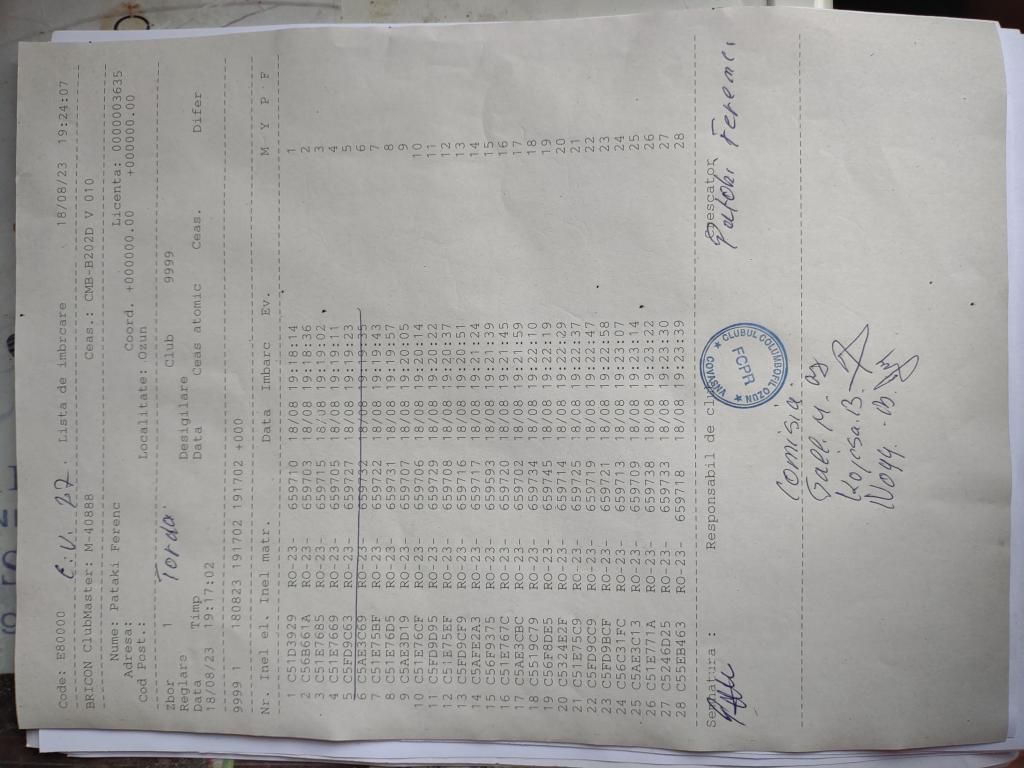 Code: E80000 C.V. 27. Lista de imbrcare 18/08/23 19:24:07
BRICON ClubMaster: M-40888 Ceas.: CMB-B202D V 010
Nume: Pataki Ferenc Licenta: 0000003635
Adresa: Coord. +000000.00 +000000.00
Cod Post.: Localitate: Ozun
Zbor 1 Torda Club 9999
Reglare Desigilare
Data Timp Data Ceas atomic Ceas. Difer
18/08/23 19:17:02
9999 1 180823 191702 191702 +000
Nr. Inel el. Inel matr. Data Imbarc Ev. M Y P F
1 C51D3929 RO-23- 659710 18/08 19:18:14 1
2 C56B661A RO-23- 659703 18/08 19:18:36 2
3 C51E7685 RO-23- 659715 18/08 19:19:02 3
4 C51E7669 RO-23- 659705 18/08 19:19:11 4
5 C5FD9C63 RO-23- 659727 18/08 19:19:23 5
6 C5AE3C59 RO-23 659732 18/08 19:19:35 6
7 C51E75BF RO-23 659722 18/08 19:19:43 7
8 C51E76D5 RO-23- 659731 18/08 19:19:57 8
9 C5AE3D19 RO-23- 659707 18/08 19:20:05 9
10 C51E76CF RO-23- 659706 18/08 19:20:14 10
11 C5FD9D95 RO-23- 659729 18/08 19:20:22 11
12 C51E75EF RO-23- 659708 18/08 19:20:37 12
13 C5FD9CF9 RO-23- 659716 18/08 19:20:51 13
14 C5AFE2A3 RO-23- 659717 18/08 19:21:24 14
15 C56F9375 RO-23- 659593 18/08 19:21:39 15
16 C51E767C RO-23- 659720 18/08 19:21:45 16
17 C5AE3CBC RO-23- 659702 18/08 19:21:59 17
18 C5519C79 RO-23- 659734 18/08 19:22:10 18
19 C56F8DE5 RO-23- 659745 18/08 19:22:19 19
20 C5324E2F RO-23- 659714 18/08 19:22:29 20
21 C51E75C9 RO-23- 659725 18/08 19:22:37 21
22 C5FD9CC9 RO-23- 659719 18/08 19:22:47 22
23 C5FD9BCF RO-23- 659721 18/08 19:22:58 23
24 C56C31FC RO-23- 659713 18/08 19:23:07 24
25 C5AE3C13 RO-23- 659709 18/08 19:23:14 25
26 C51E771A RO-23- 659738 18/08 19:23:22 26
27 C5246D25 RO-23- 659733 18/08 19:23:30 27
28 C55EB463 RO-23- 659718 18/08 19:23:39 28
Semnatura : Responsabil de club Crescator
Pataki Ferenc
CLUBUL COLUMBOFIL OZUN ★ COVASNA ★
FCPR
Comisia.
Gall. M.
Kocsa. B.
Nagy. B.